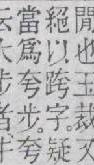 閒也王裁
絕以跨字。疑
當爲夸步。夸
云大步者